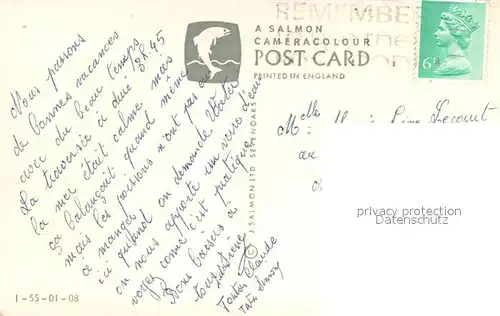 Nous passons
de bonnes vacances
avec du beau temps
La traversée a duré 3h.45
la mer était calme mais
ça balançait quand même
mais les poissons n'ont pas eu
à manger
ici quand on demande Water
on nous apporte un verre d'eau
voyez comme c'est pratique
Bons baisers à
tous
Tonton Claude
Tata
1-55-01-08
© J. SALMON LTD. SEVENOAKS
A SALMON
CAMERACOLOUR
POST CARD
PRINTED IN ENGLAND
REMEMBER
6P
Melle
M:
au
privacy protection